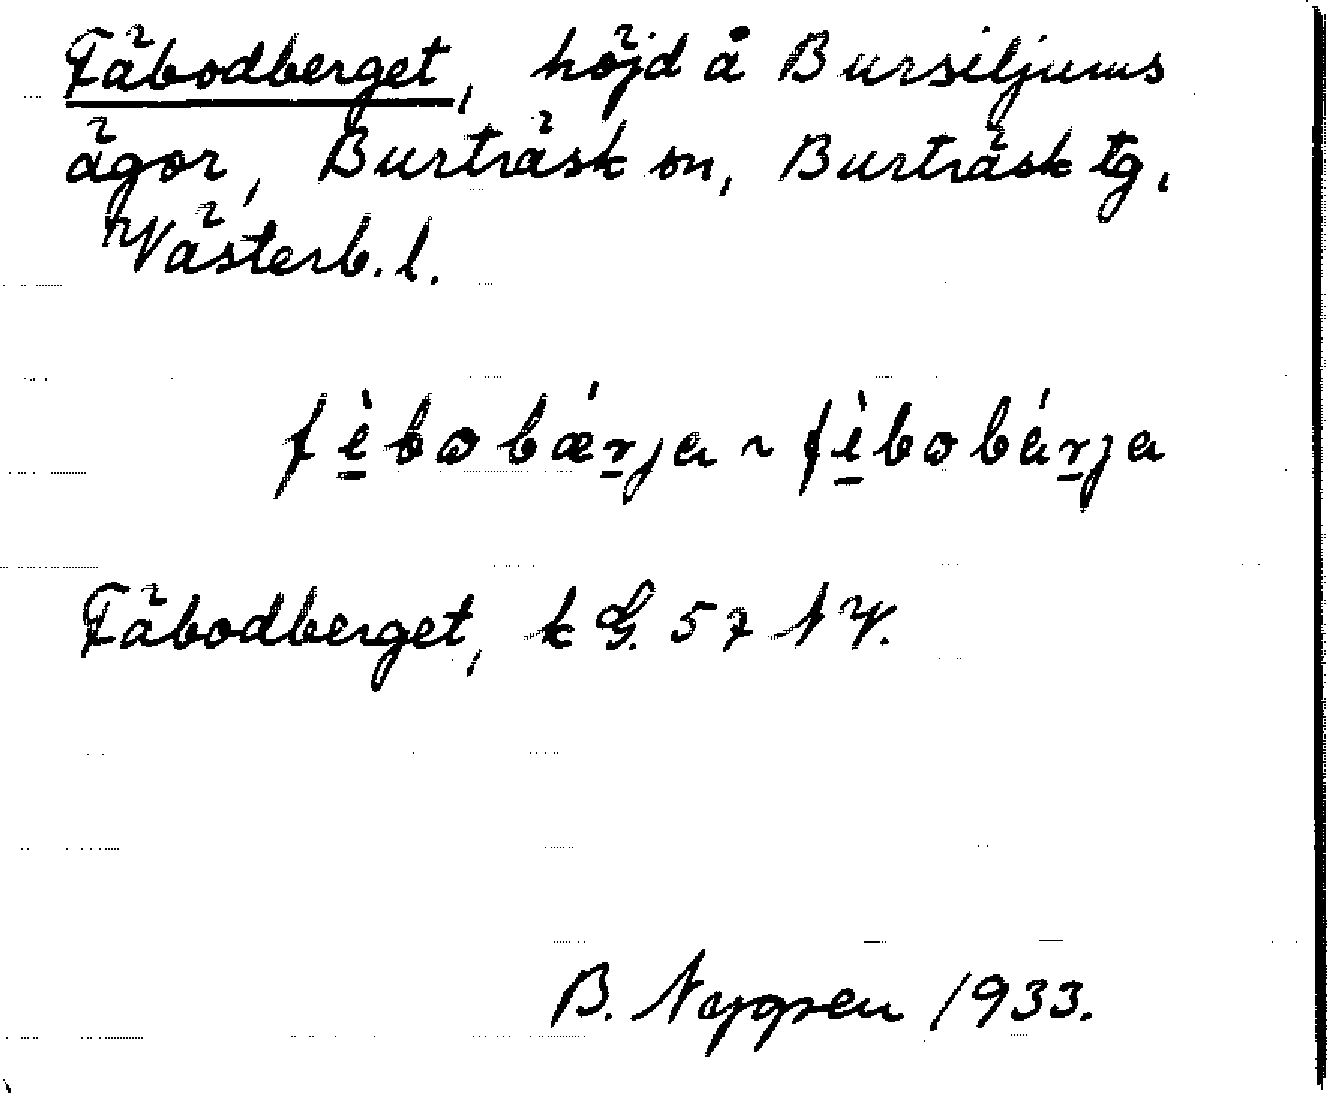 Fäbodberget, höjd å Bursiljums
ägor, Burträsk sn, Burträsk tg,
Västerb. l.
fè̱bobǽṟja ~ fè̱bobáṟja
Fäbodberget, k G. 57 NV.
B. Nygren 1933.